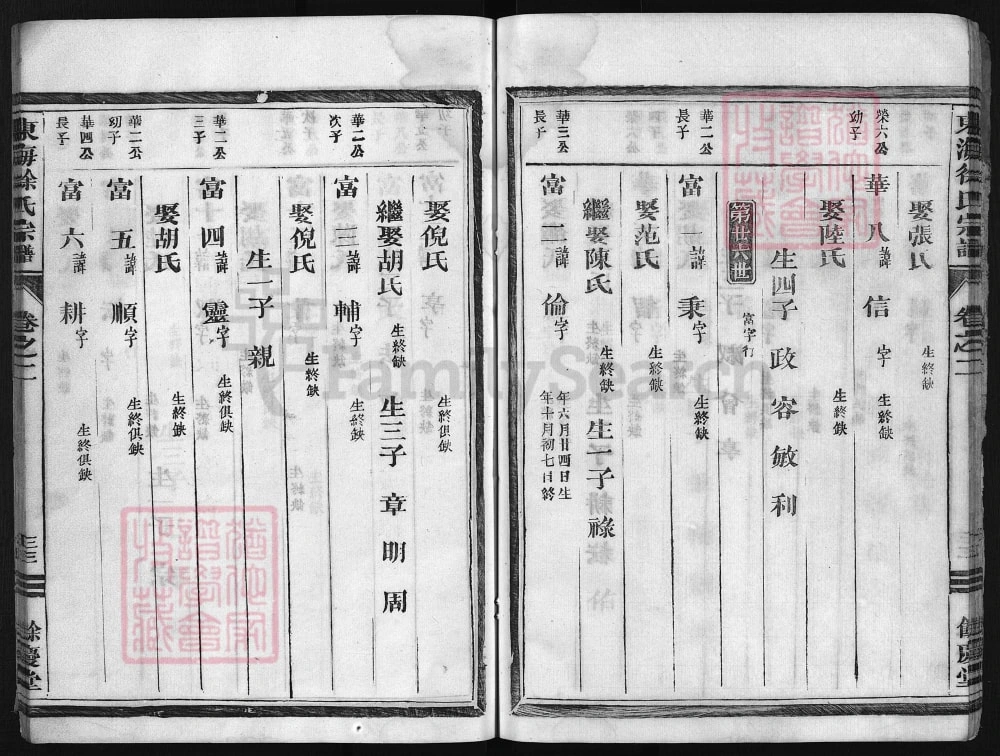 東海徐氏宗譜
卷之二
餘慶堂
娶張氏 生終缺
榮六公 幼子
華八諱信 字 生終缺
娶陸氏 生終缺
生四子 政 容 敏 利
第廿六世 富字行
華二公 長子
富一諱秉字 生終缺
娶范氏 生終缺
繼娶陳氏 生終缺 生一子 祿
華三公 長子
富二 倫字 年六月廿四日生 年十月初七日終
娶倪氏 生終俱缺
繼娶胡氏 生終缺 生三子 章 明 周
華二公 次子
富三諱輔字 生終缺
娶倪氏 生終缺
生一子 親
華二公 三子
富十四諱靈字 生終俱缺
娶胡氏 生終缺
華二公 幼子
富五諱順字 生終俱缺
華四公 長子
富六諱耕字 生終俱缺
東海徐氏宗譜
卷之二
餘慶堂
FamilySearch